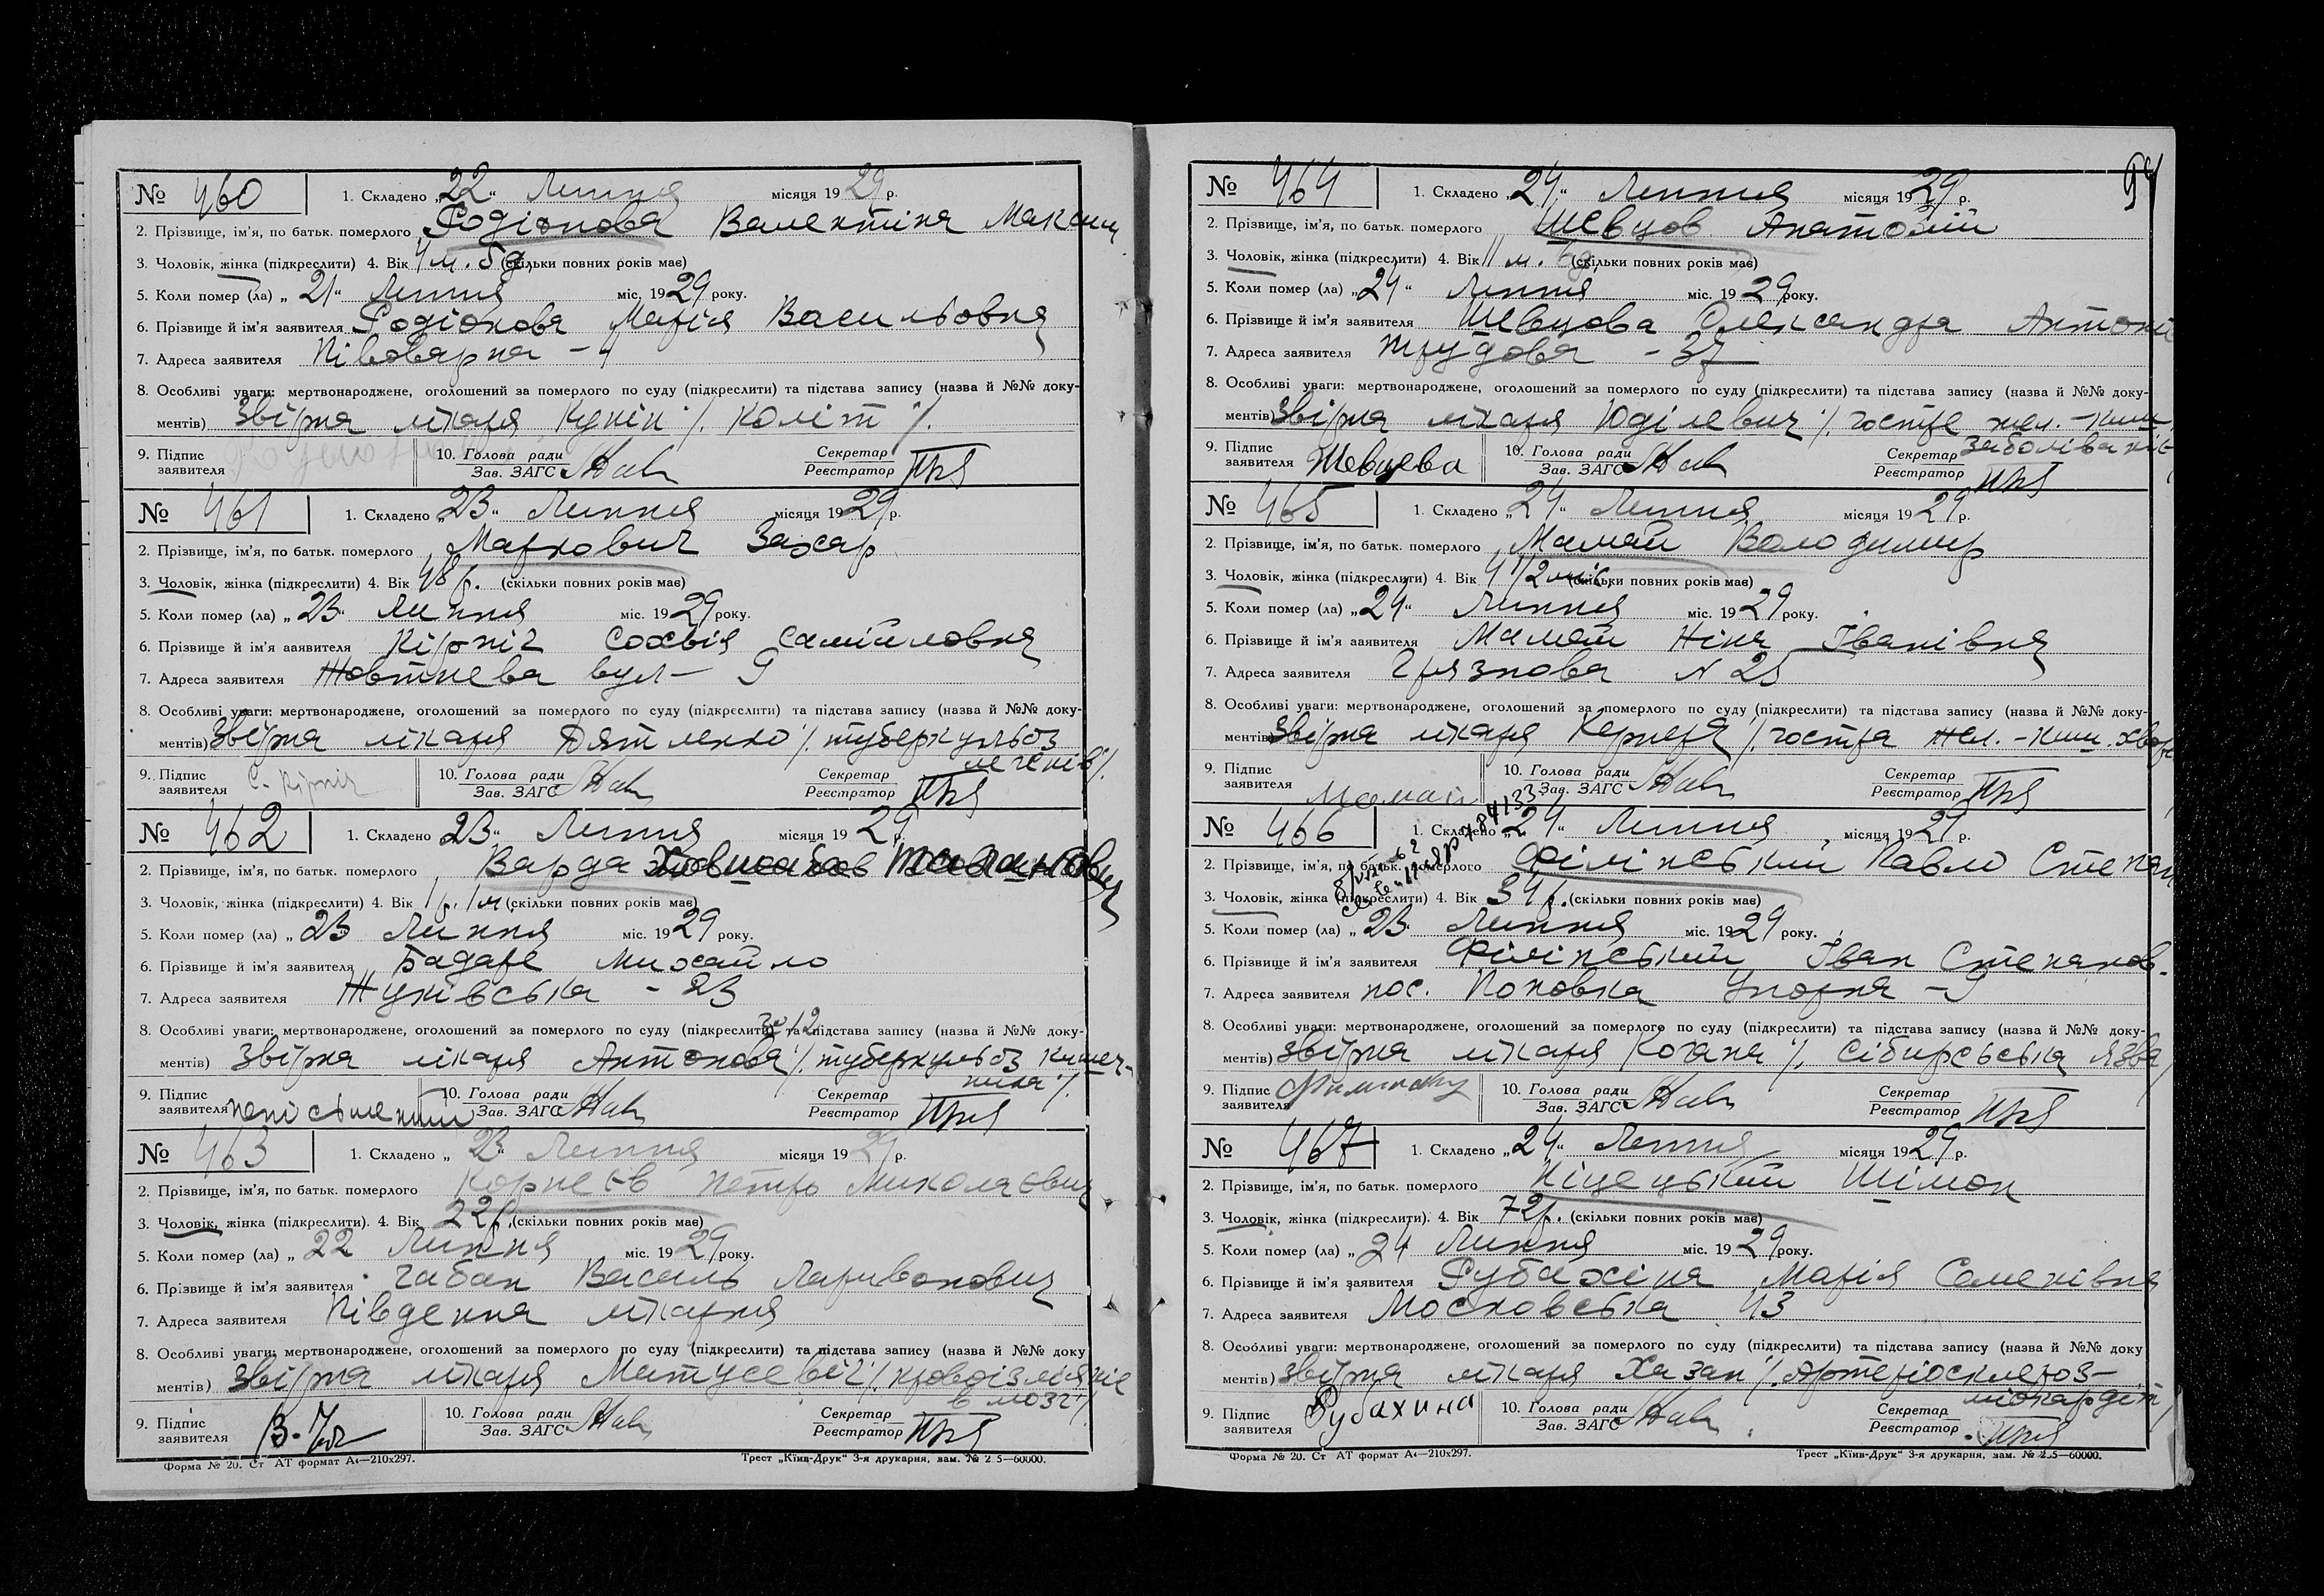 № 460 1. Складено „22“ Липня місяця 1929 р.
2. Прізвище, ім'я, по батьк. померлого Родіонова Валентіна Максим
3. Чоловік, жінка (підкреслити) 4. Вік 4 м. 5 д. (скільки повних років має)
5. Коли помер (ла) „21“ Липня міс. 1929 року.
6. Прізвище й ім'я заявителя Родіонова Марія Васильовна
7. Адреса заявителя Півоварна - 4
8. Особливі уваги: мертвонароджене, оголошений за померлого по суду (підкреслити) та підстава запису (назва й №№ доку-
ментів) Звірка лікаря Кунін /. коліт /.
9. Підпис заявителя 10. Голова ради Зав. ЗАГС Секретар Реєстратор
№ 461 1. Складено „23“ Липня місяця 1929 р.
2. Прізвище, ім'я, по батьк. померлого Маркович Захар
3. Чоловік, жінка (підкреслити) 4. Вік 48 р. (скільки повних років має)
5. Коли помер (ла) „23“ Липня міс. 1929 року.
6. Прізвище й ім'я заявителя Кірпіч Софія Самійловна
7. Адреса заявителя Жовтнева вул - 9
8. Особливі уваги: мертвонароджене, оголошений за померлого по суду (підкреслити) та підстава запису (назва й №№ доку-
ментів) Звірка лікаря Дятленко /. туберкульоз
легенів /.
9. Підпис заявителя С. Кірпіч 10. Голова ради Зав. ЗАГС Секретар Реєстратор
№ 462 1. Складено „23“ Липня місяця 1929 р.
2. Прізвище, ім'я, по батьк. померлого Варда
3. Чоловік, жінка (підкреслити) 4. Вік 1 р. 1 м. (скільки повних років має)
5. Коли помер (ла) „23 Липня міс. 1929 року.
6. Прізвище й ім'я заявителя Бадаре Михайло
7. Адреса заявителя Жуківська - 23
8. Особливі уваги: мертвонароджене, оголошений за померлого по суду (підкреслити) та підстава запису (назва й №№ доку-
ментів) Звірка лікаря Антонова /. туберкульоз кишеч-
ника /.
9. Підпис заявителя непісьменний 10. Голова ради Зав. ЗАГС Секретар Реєстратор
№ 463 1. Складено „23“ Липня місяця 1929 р.
2. Прізвище, ім'я, по батьк. померлого Корнєєв Петро Миколаєвич
3. Чоловік, жінка (підкреслити). 4. Вік 22 р. (скільки повних років має)
5. Коли помер (ла) „22 Липня міс. 1929 року.
6. Прізвище й ім'я заявителя Чабан Василь Ларивонович
7. Адреса заявителя Південна лікарня
8. Особливі уваги: мертвонароджене, оголошений за померлого по суду (підкреслити) та підстава запису (назва й №№ доку
ментів) Звірка лікаря Матусевіч /. кровоізліяніє
в мозг /.
9. Підпис заявителя 10. Голова ради Зав. ЗАГС Секретар Реєстратор
Форма № 20. Ст АТ формат А4—210х297. Трест „Київ-Друк“ 3-я друкарня, зам. № 2 5—60000.
94
№ 464 1. Складено „24“ Липня місяця 1929 р.
2. Прізвище, ім'я, по батьк. померлого Шевцов Анатолій
3. Чоловік, жінка (підкреслити) 4. Вік 11 м. 6 д. (скільки повних років має)
5. Коли помер (ла) „24“ Липня міс. 1929 року.
6. Прізвище й ім'я заявителя Шевцова Олександра Антоні
7. Адреса заявителя Трудова - 37
8. Особливі уваги: мертвонароджене, оголошений за померлого по суду (підкреслити) та підстава запису (назва й №№ доку-
ментів) Звірка лікаря Юділевич /. гостре жел. - киш
заболіваніє
9. Підпис заявителя Шевцева 10. Голова ради Зав. ЗАГС Секретар Реєстратор
№ 465 1. Складено „24“ Липня місяця 1929 р.
2. Прізвище, ім'я, по батьк. померлого Мамай Володимир
3. Чоловік, жінка (підкреслити) 4. Вік 4 1/2 міс. (скільки повних років має)
5. Коли помер (ла) „24“ Липня міс. 1929 року.
6. Прізвище й ім'я заявителя Мамай Ніна Іванівна
7. Адреса заявителя Грязнова N 25
8. Особливі уваги: мертвонароджене, оголошений за померлого по суду (підкреслити) та підстава запису (назва й №№ доку-
ментів) Звірка лікаря Кернера /. гостра жел. - киш. хвор
9. Підпис заявителя Мамай 10. Голова ради Зав. ЗАГС Секретар Реєстратор
№ 466 1. Складено „24“ Липня місяця 1929 р.
2. Прізвище, ім'я, по батьк. померлого Філінський Павло Степан
3. Чоловік, жінка (підкреслити) 4. Вік 34 р. (скільки повних років має)
5. Коли помер (ла) „23“ Липня міс. 1929 року.
6. Прізвище й ім'я заявителя Філінський Іван Степанов.
7. Адреса заявителя пос. Поповка Угорна - 9
8. Особливі уваги: мертвонароджене, оголошений за померлого по суду (підкреслити) та підстава запису (назва й №№ доку-
ментів) Звірка лікаря Когана /. сібирська язва /
9. Підпис заявителя 10. Голова ради Зав. ЗАГС Секретар Реєстратор
№ 467 1. Складено „24“ Липня місяця 1929 р.
2. Прізвище, ім'я, по батьк. померлого Піцецький Шімон
3. Чоловік, жінка (підкреслити). 4. Вік 72 р. (скільки повних років має)
5. Коли помер (ла) „24 Липня міс. 1929 року.
6. Прізвище й ім'я заявителя Рубахіна Марія Семенівна
7. Адреса заявителя Московська 43
8. Особливі уваги: мертвонароджене, оголошений за померлого по суду (підкреслити) та підстава запису (назва й №№ доку
ментів) Звірка лікаря Хазан /. Артеріосклероз -
міокардіт /
9. Підпис заявителя Рубахина 10. Голова ради Зав. ЗАГС Секретар Реєстратор
Форма № 20. Ст АТ формат А4—210х297. Трест „Київ-Друк“ 3-я друкарня, зам. № 2.5—60000.